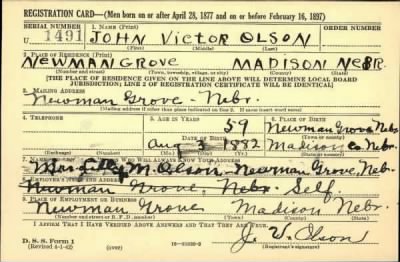 REGISTRATION CARD—(Men born on or after April 28, 1877 and on or before February 16, 1897)
SERIAL NUMBER 1. NAME (Print) ORDER NUMBER
U 1491 JOHN VICTOR OLSON
(First) (Middle) (Last)
2. PLACE OF RESIDENCE (Print)
NEWMAN GROVE MADISON NEBR.
(Number and street) (Town, township, village, or city) (County) (State)
[THE PLACE OF RESIDENCE GIVEN ON THE LINE ABOVE WILL DETERMINE LOCAL BOARD
JURISDICTION; LINE 2 OF REGISTRATION CERTIFICATE WILL BE IDENTICAL]
3. MAILING ADDRESS
Newman Grove - Nebr.
[Mailing address if other than place indicated on line 2. If same insert word same]
4. TELEPHONE 5. AGE IN YEARS 6. PLACE OF BIRTH
59 Newman Grove Nebr
DATE OF BIRTH
Aug 3 1882 Madison Co Nebr.
7. NAME AND ADDRESS OF PERSON WHO WILL ALWAYS KNOW YOUR ADDRESS
Mrs. M. Olson - Newman Grove, Nebr.
8. EMPLOYER'S NAME AND ADDRESS
Newman Grove, Nebr Self.
9. PLACE OF EMPLOYMENT OR BUSINESS
Newman Grove Madison Nebr.
(Number and street or R. F. D. number) (Town) (County) (State)
I AFFIRM THAT I HAVE VERIFIED ABOVE ANSWERS AND THAT THEY ARE TRUE.
J. V. Olson
D. S. S. Form 1
(Revised 4-1-42) (over) (Registrant's signature)